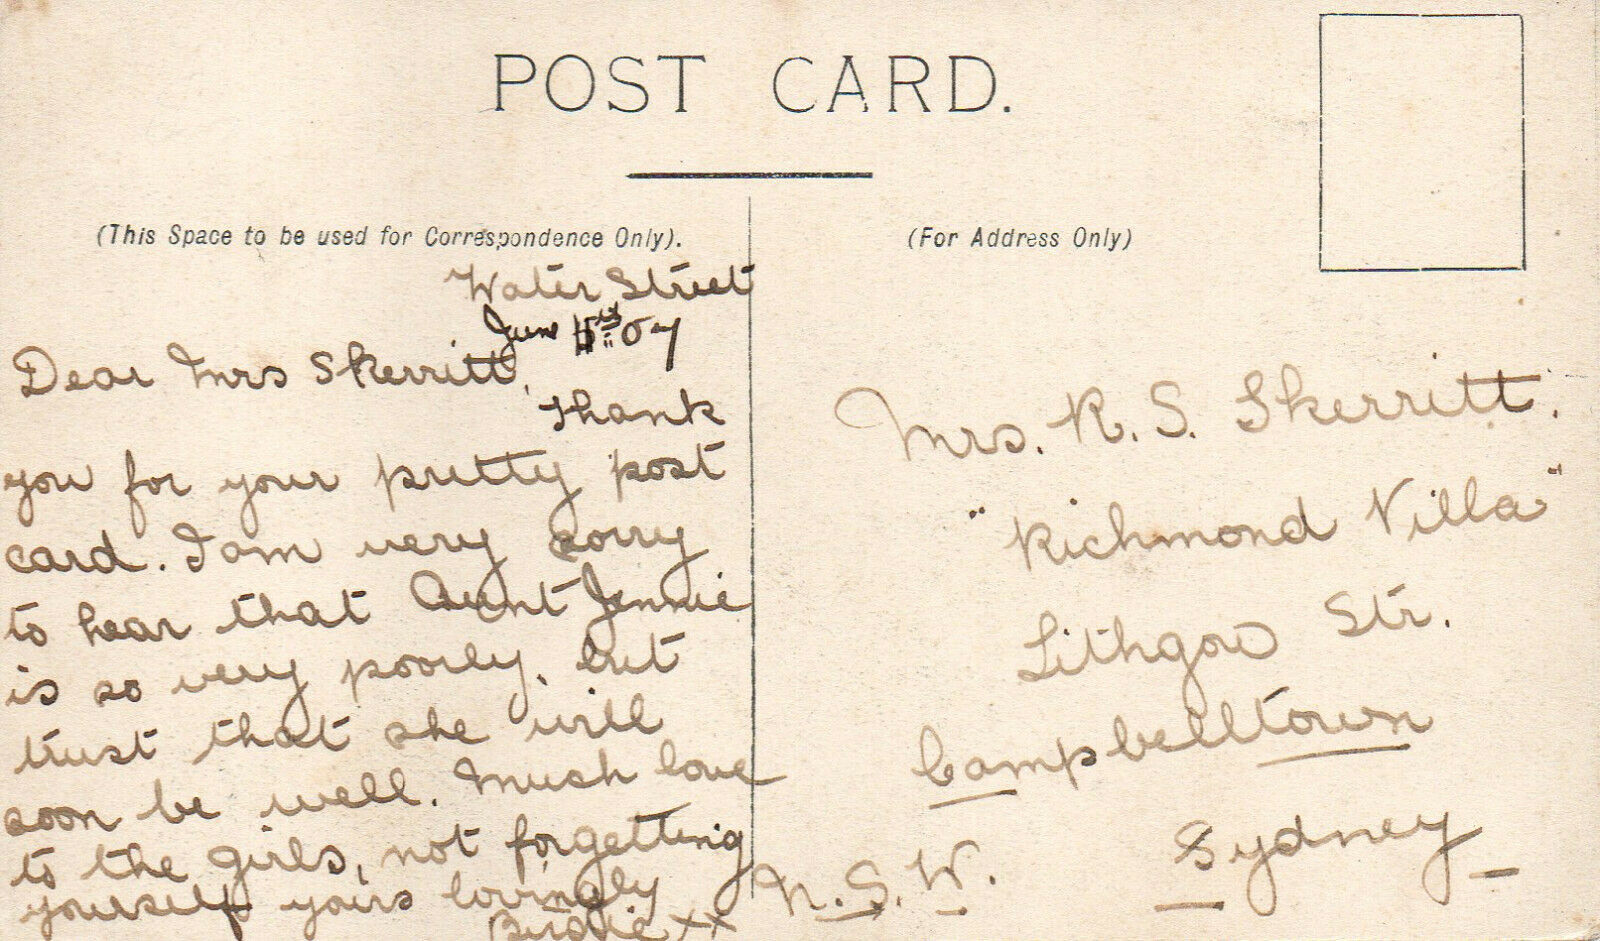 POST CARD.
(This Space to be used for Correspondence Only).
Water Street
June 07
Dear Mrs Skerritt,
Thank
you for your pretty post
card. I am very sorry
to hear that Aunt Jennie
is so very poorly, but
trust that she will
soon be well. Much love
to the girls, not forgetting
yourself yours lovingly
Birdie xx
(For Address Only)
Mrs. R. S. Skerritt.
"Richmond Villa"
Lithgow Str.
Campbelltown
Sydney
N.S.W.